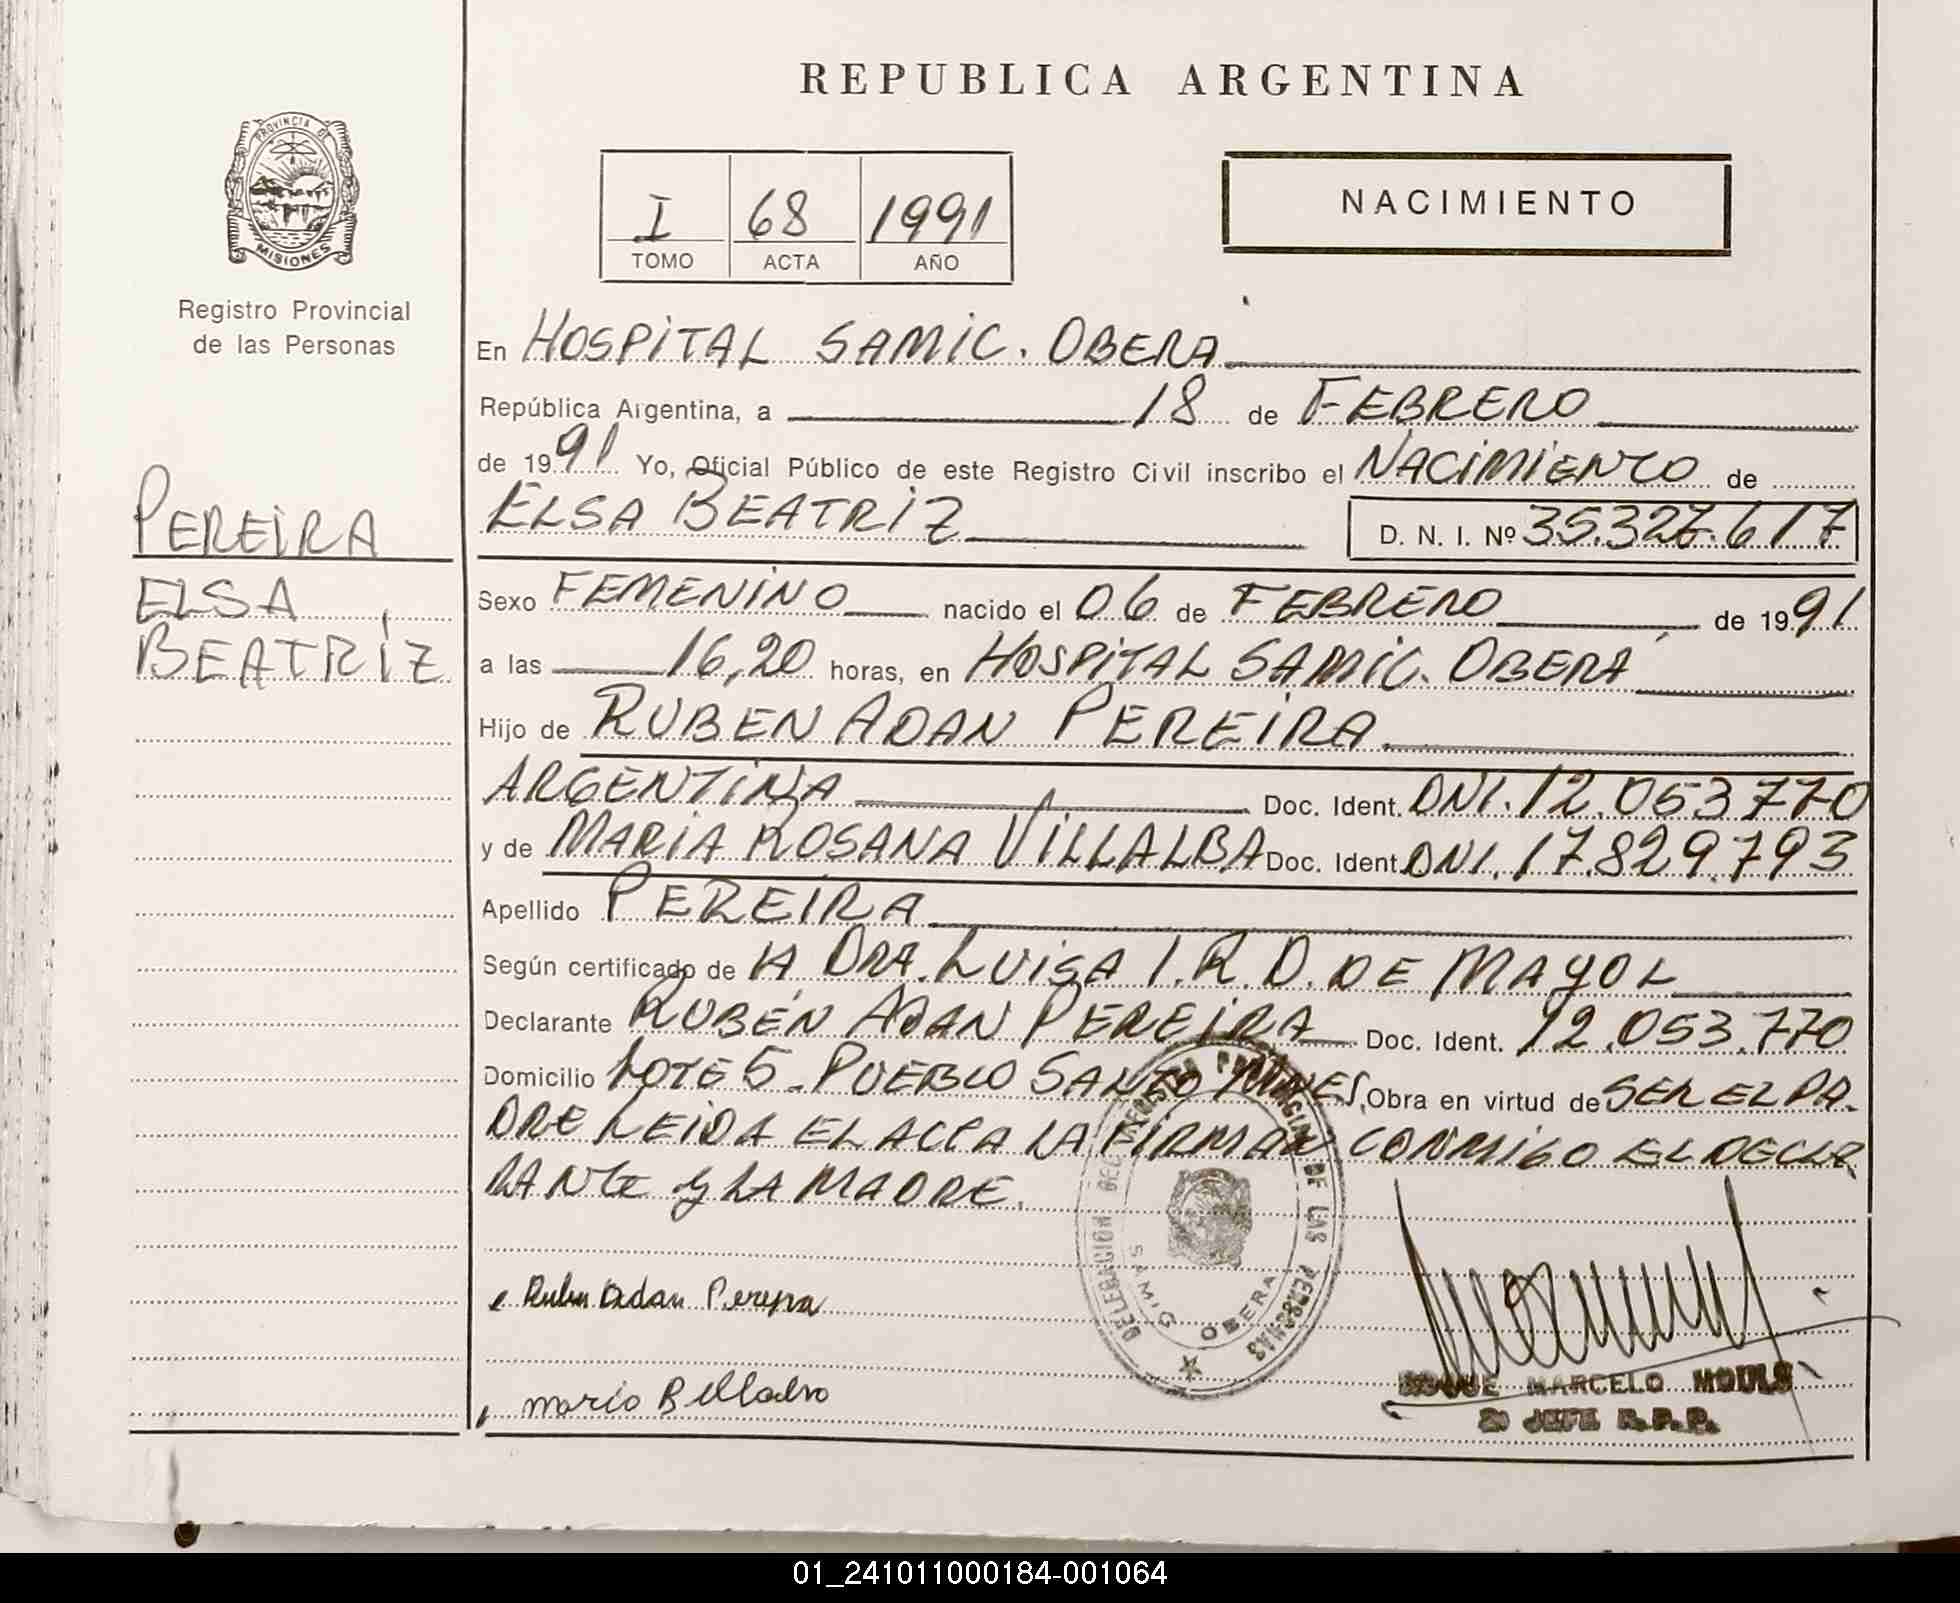 REPUBLICA ARGENTINA
PROVINCIA DE
MISIONES
Registro Provincial
de las Personas
I 68 1991
TOMO ACTA AÑO
NACIMIENTO
En HOSPITAL SAMIC. OBERA
República Argentina, a 18 de FEBRERO
de 1991 Yo, Oficial Público de este Registro Civil inscribo el NACIMIENTO de
PEREIRA
ELSA BEATRIZ D. N. I. Nº 35.327.617
ELSA
BEATRIZ
Sexo FEMENINO nacido el 06 de FEBRERO de 1991
a las 16,20 horas, en HOSPITAL SAMIC. OBERÁ
Hijo de RUBEN ADAN PEREIRA
ARGENTINA Doc. Ident. DNI. 12.053770
y de MARIA ROSANA VILLALBA Doc. Ident. DNI. 17.829.793
Apellido PEREIRA
Según certificado de LA DRA. LUISA I. R. D. DE MAYOL
Declarante RUBÉN ADAN PEREIRA Doc. Ident. 12.053.770
Domicilio LOTE 5 - PUEBLO SANTO Obra en virtud de SER EL PA-
DRE LEIDA EL ACTA LA FIRMAN CONMIGO EL DECLA
RANTE Y LA MADRE.
DELEGACION DEL REGISTRO PROVINCIAL DE LAS PERSONAS
SAMIC OBERA
Ruben Adan Pereyra
MARCELO MOULS
2º JEFE R.P.P.
01_241011000184-001064